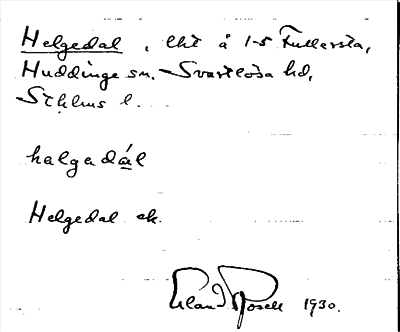 Helgedal, lht å 1-5 Fullersta,
Huddinge sn. Svartlösa hd,
Sthlms l.
halgadál
Helgedal ek.
Erland Rosell 1930.